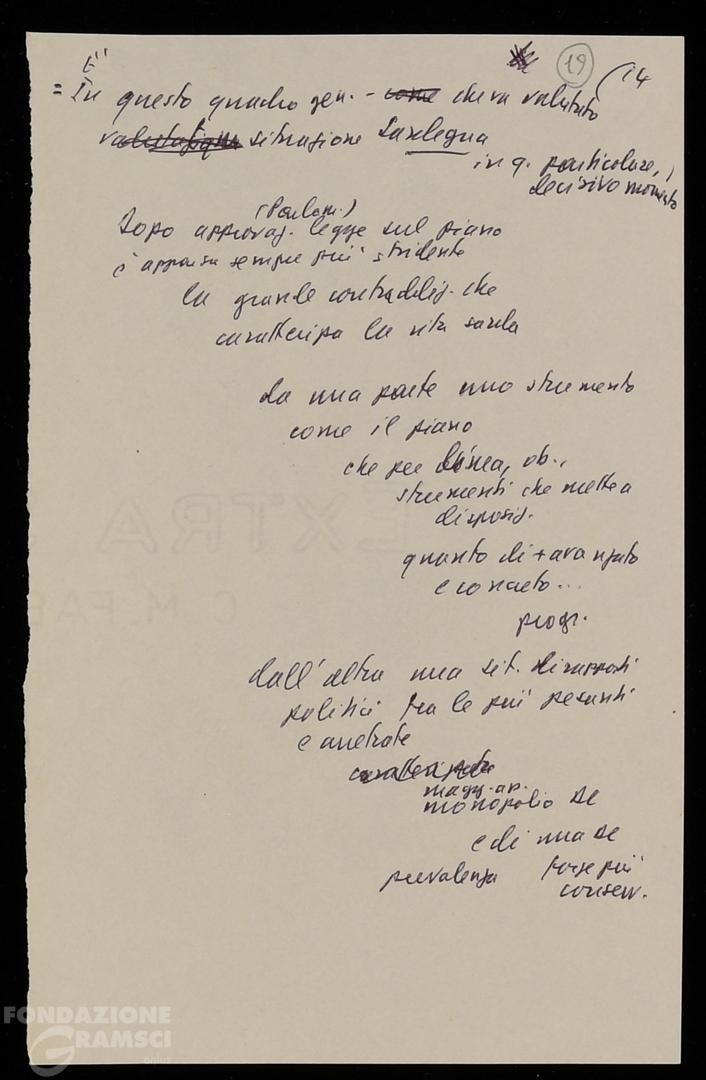 19
14
E'
= In questo quadro gen. - come che va valutato
situazione Sardegna
in q. particolare,
decisivo momento
(Parlam.)
Dopo approvaz. legge sul piano
è apparsa sempre più stridente
la grande contraddiz. che
caratterizza la vita sarda
da una parte uno strumento
come il piano
che per linea, ob.,
strumenti che mette a
disposiz.
quanto di + avanzato
e concreto...
progr.
dall'altra una sit. di rapporti
politici tra le più pesanti
e arretrate
magg. as.
monopolio DC
e di una DC
prevalenza forse più
conserv.
EXTRA
FONDAZIONE
GRAMSCI
onlus